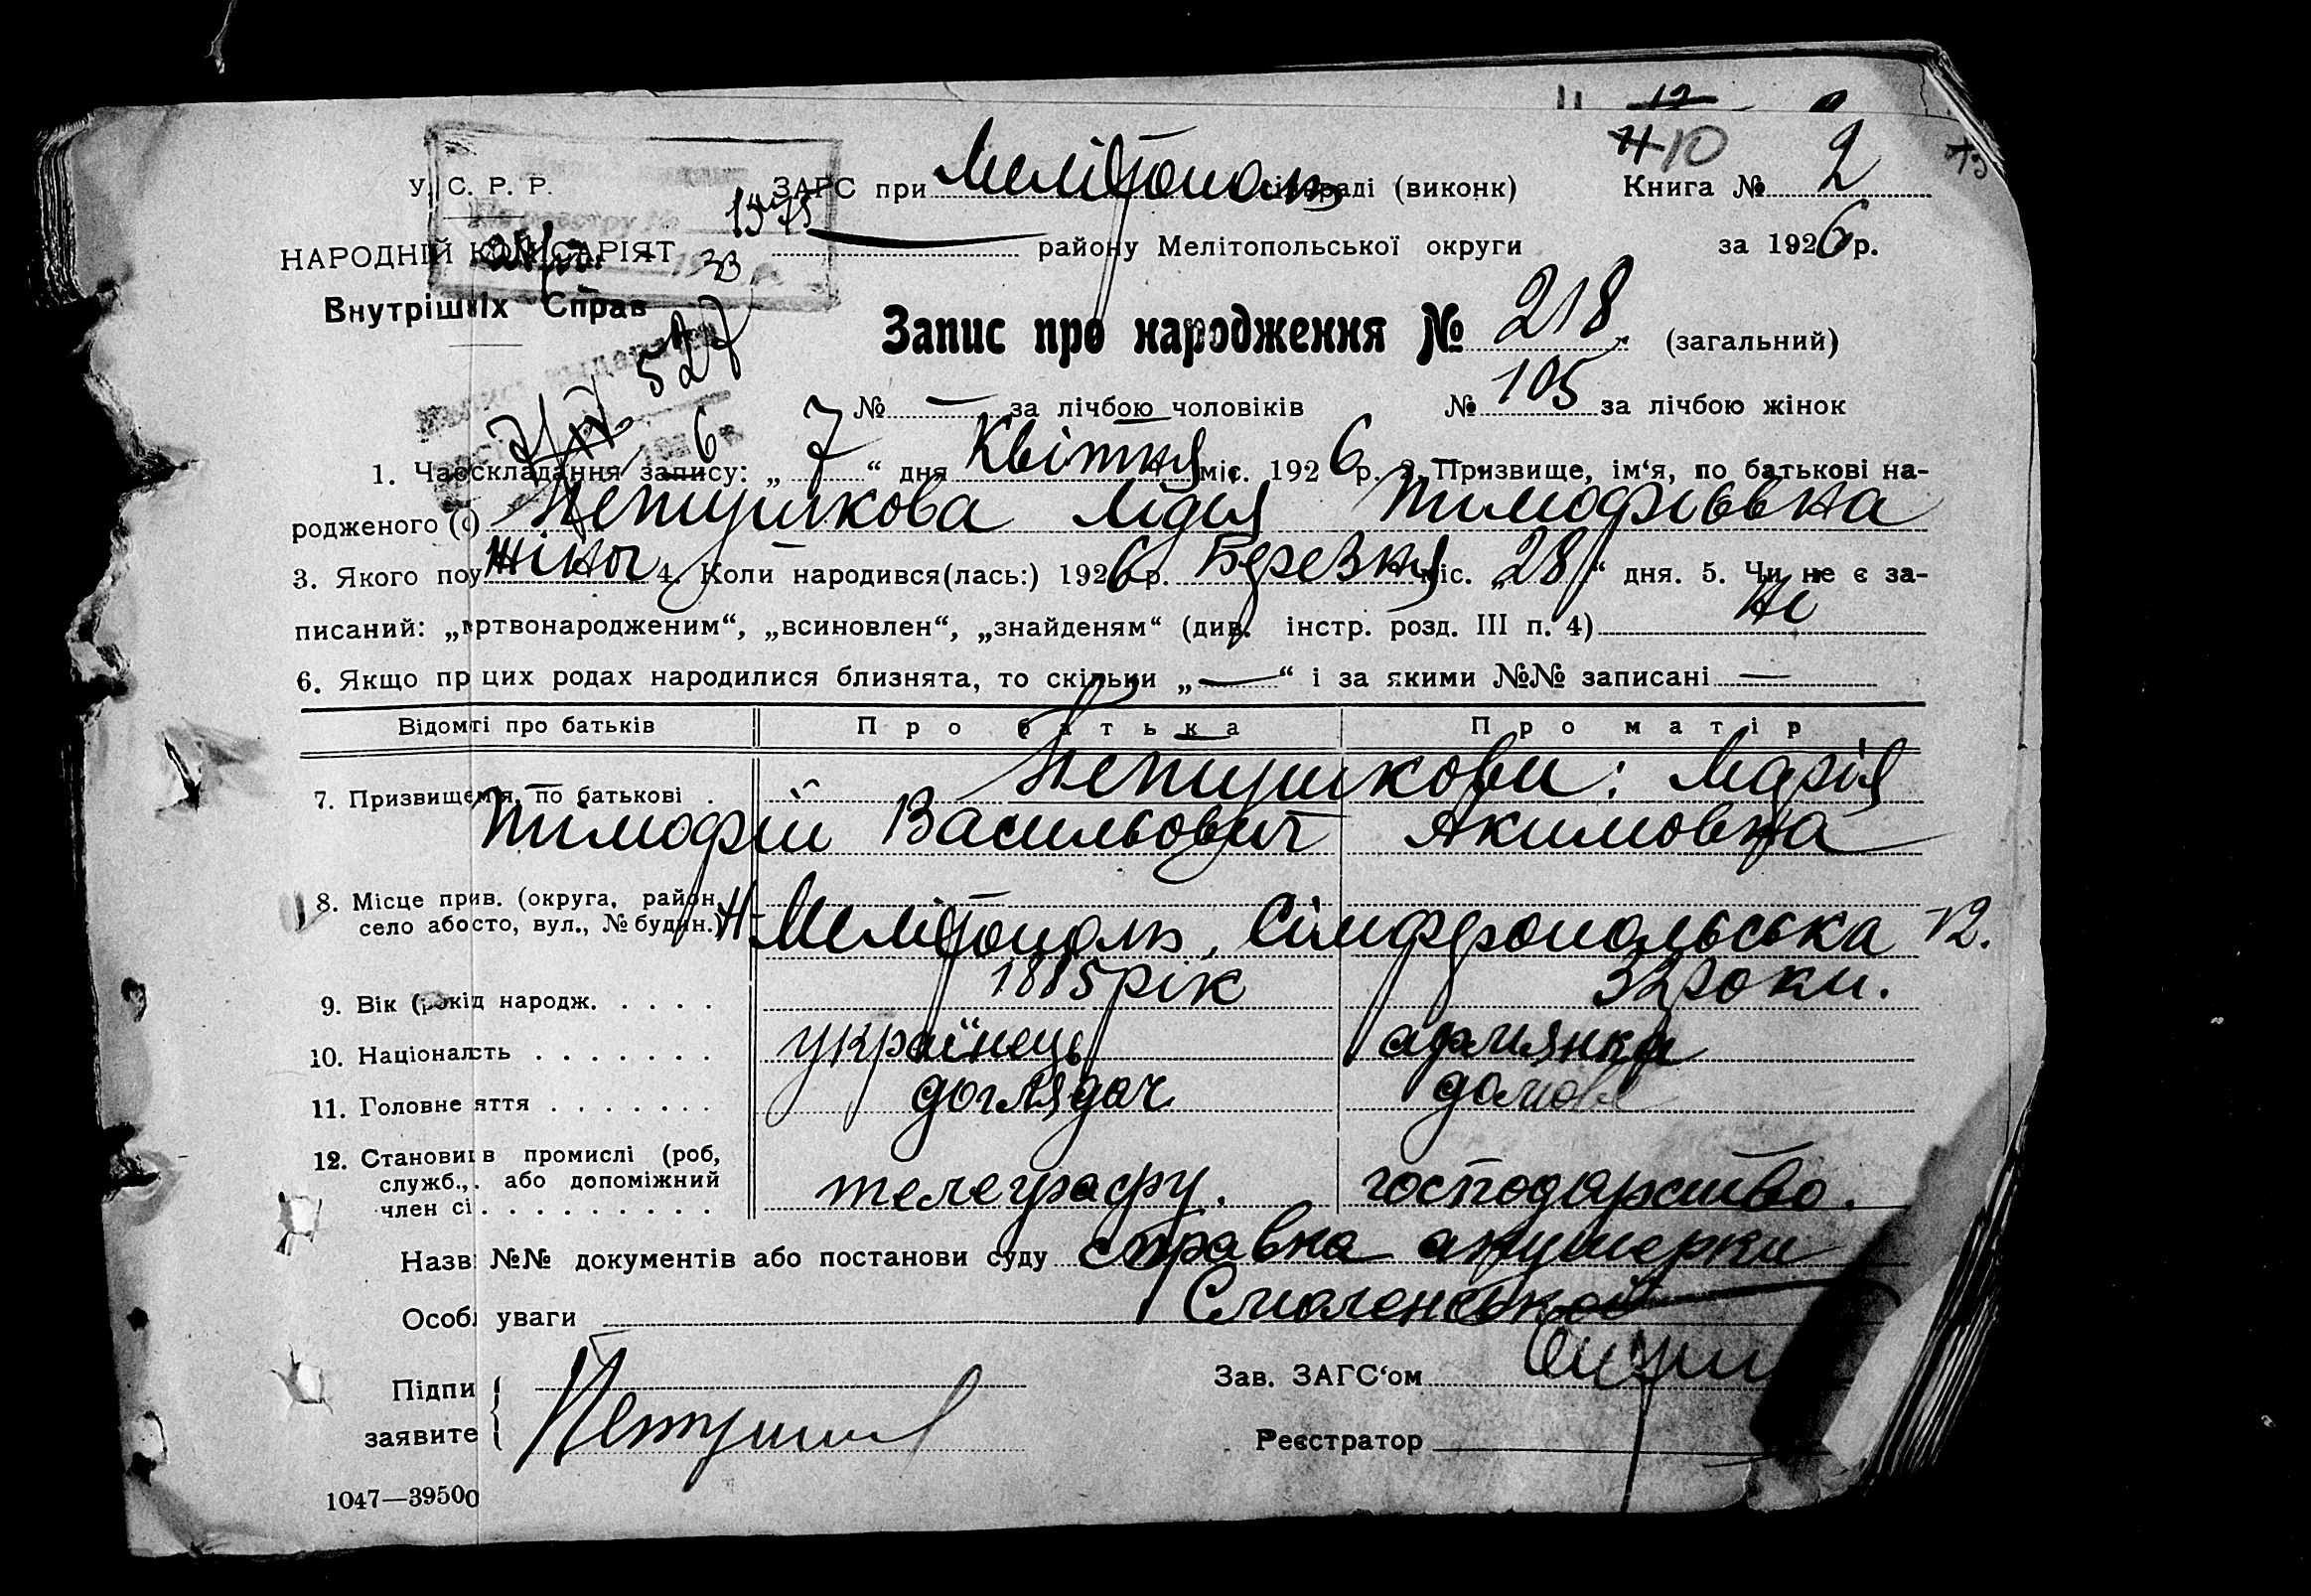 12
11 10
13
У. С. Р. Р. ЗАГС при Мелітополь сільраді (виконк) Книга № 2
НАРОДНІЙ КОМІСАРІЯТ району Мелітопольської округи за 1926 р.
Внутрішніх Справ
Запис про народження № 218 (загальний)
527
№ — за лічбою чоловіків № 105 за лічбою жінок
1. Час складання запису: „ 7 “ дня Квітня міс. 1926 р. 2. Призвище, ім‘я, по батькові на-
родженого (ї) Петушкова Лідія Тимофіївна
3. Якого полу жіноч 4. Коли народився(лась:) 1926 р. Березня міс. „28“ дня. 5. Чи не є за-
писаний: „ртвонародженим“, „всиновлен“, „знайденям“ (див. інстр. розд. III п. 4) Ні
6. Якщо пр цих родах народилися близнята, то скільки „—“ і за якими №№ записані —
Відомті про батьків Про батька Про матір
7. Призвищем‘я, по батькові . Петушкови: Марія
Тимофій Васильович Якимовна
8. Місце прив. (округа, район,
село або сто, вул., № будин.) М-Мелітополь, Сімферопольська 12.
9. Вік (рокід народж. . . . . 1885 рік 32 роки.
10. Націоналсть . . . . . . . українець армянка
11. Головне яття . . . . . . . доглядач домов
12. Становив промислі (роб,
служб., . або допоміжний
член сі . . . . . . . . . телеграфу. господарство.
Назв №№ документів або постанови суду справка акушерки
Особл уваги Смоленської
Підпи Зав. ЗАГС‘ом
заявите Петушков Реєстратор
1047—39500